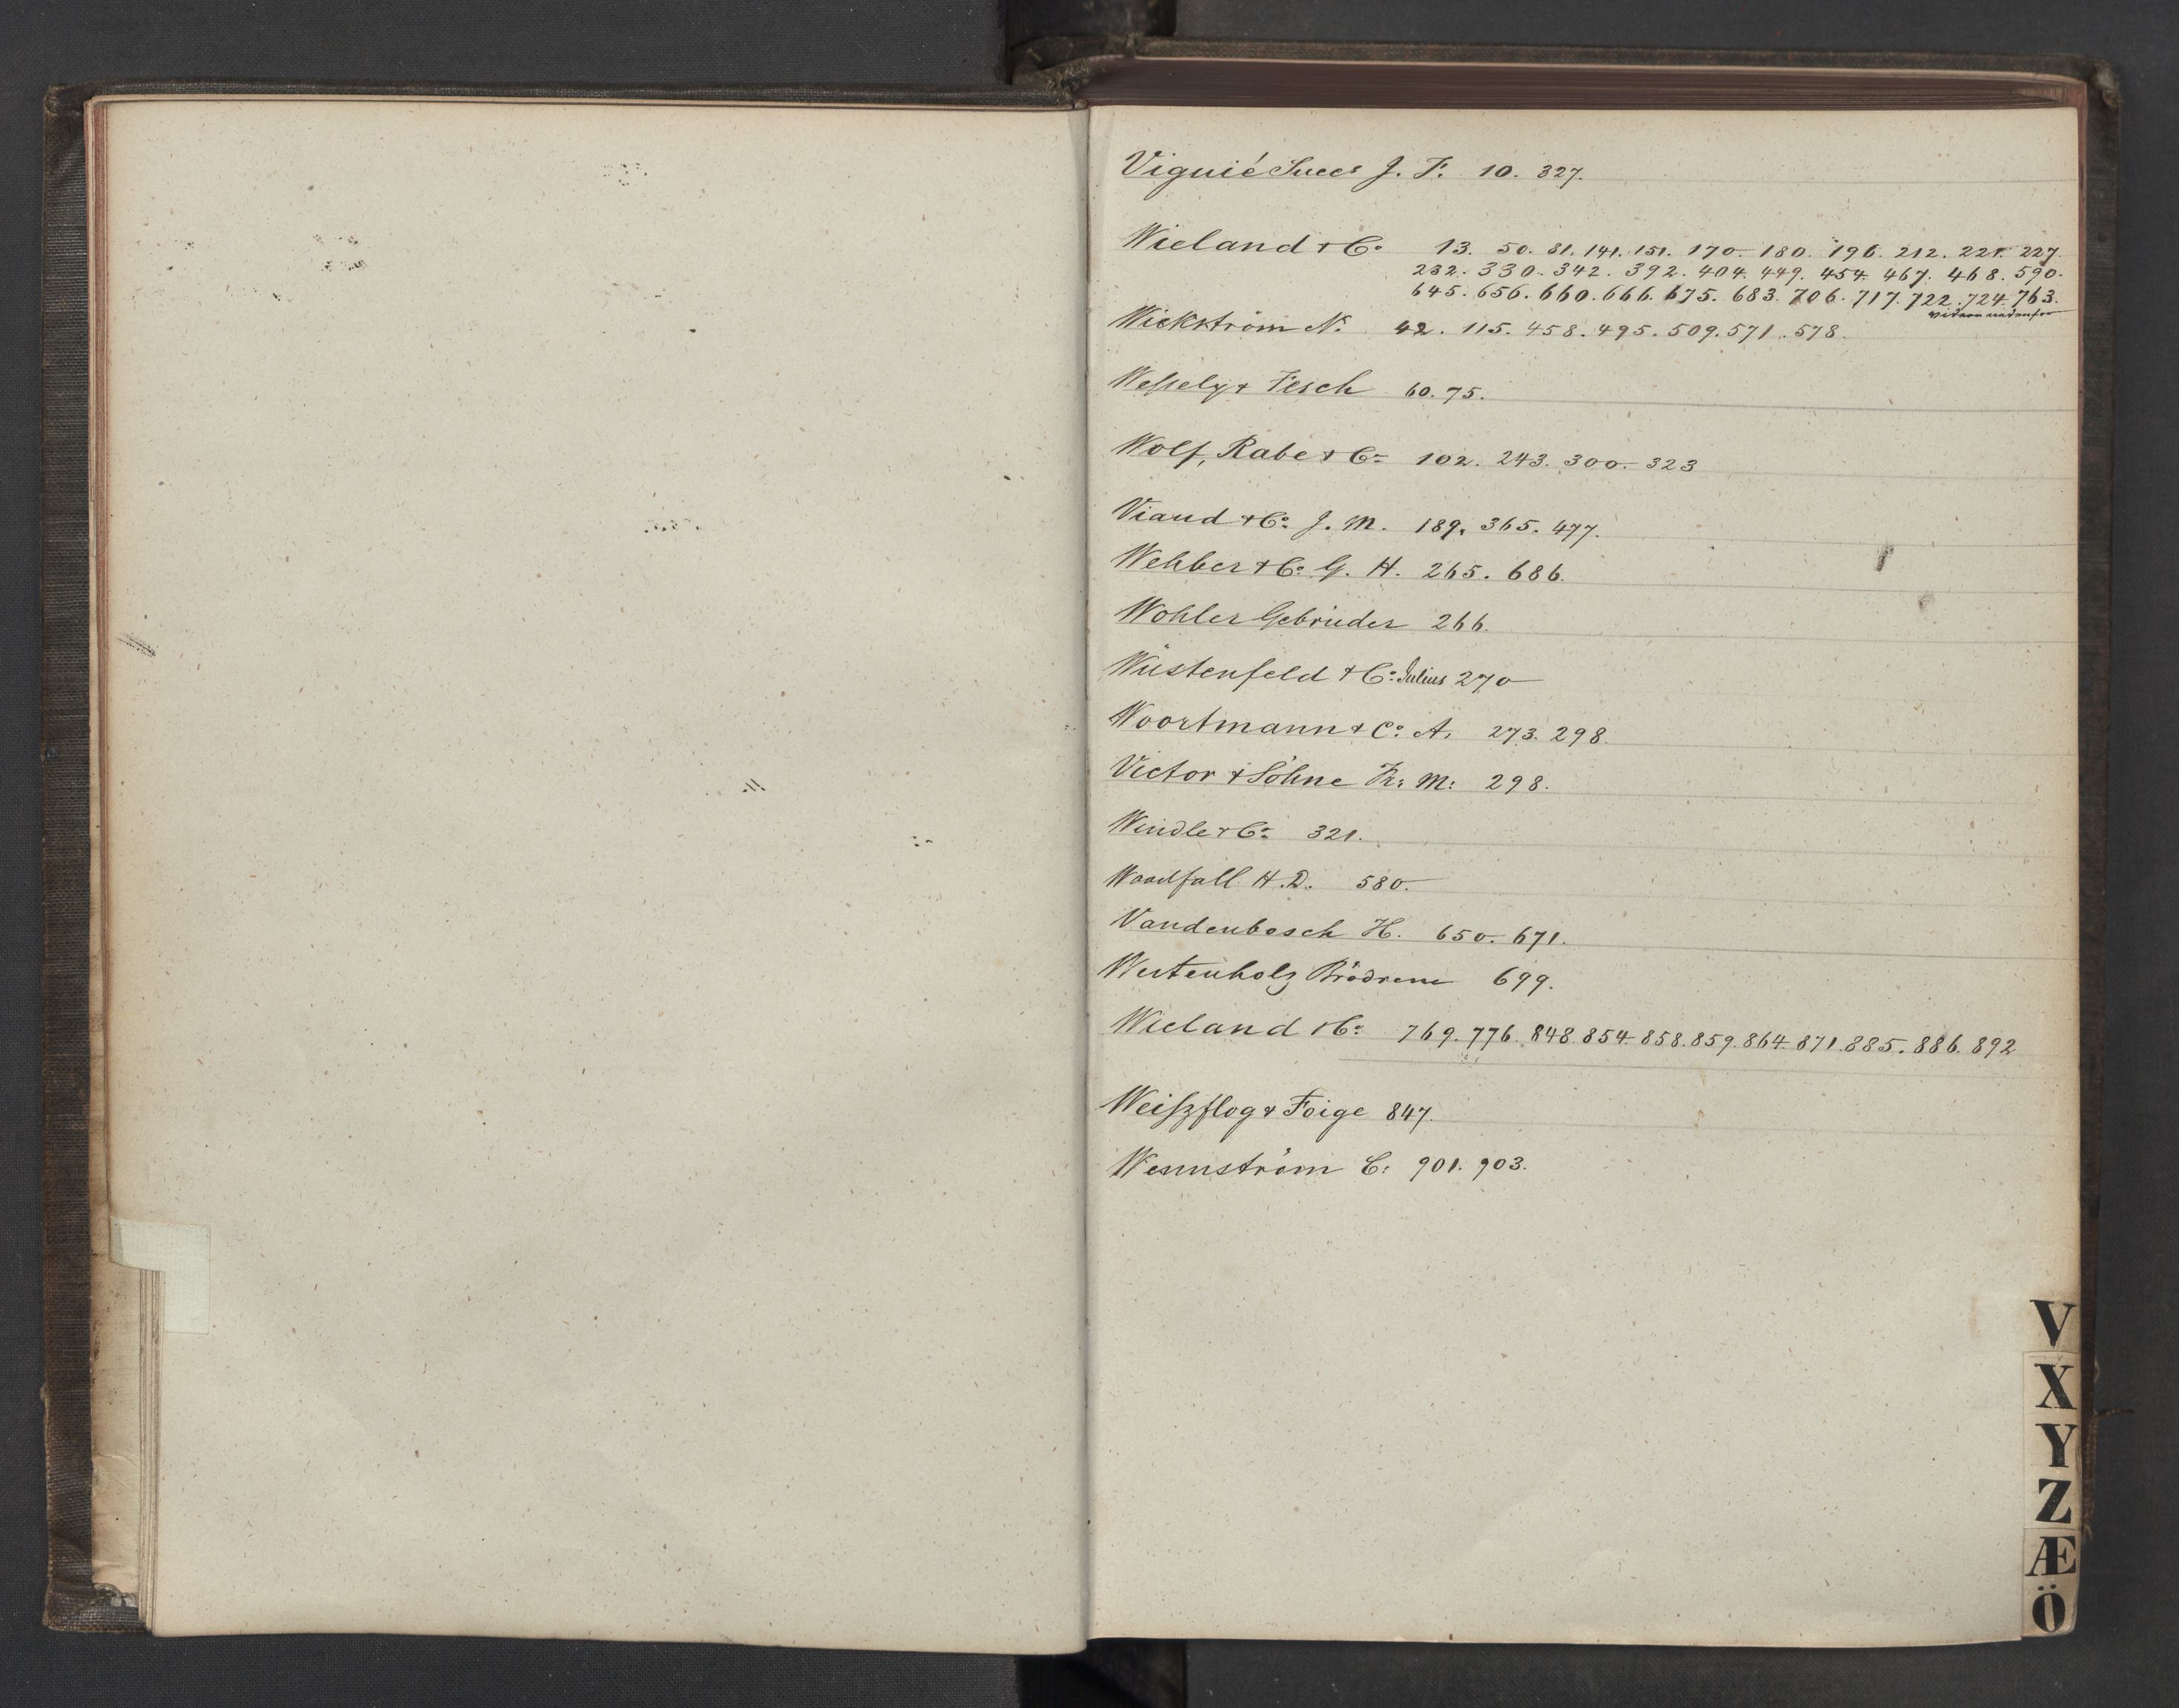 Viguié Succr J. F. 10. 327.
Wieland & Co 13. 50. 81. 141. 151. 170. 180. 196. 212. 221. 227.
232. 330. 342. 392. 404. 449. 454. 467. 468. 590.
645. 656. 660. 666. 675. 683. 706. 717. 722. 724. 763.
videre nedenfor
Wickström N. 42. 115. 458. 495. 509. 571. 578.
Wessely & Fesch 60. 75.
Wolf, Rabe & Co 102. 243. 300. 323
Viaud & Co J. M. 189. 365. 477.
Wehber & Co G. H. 265. 686.
Wohler Gebrüder 266.
Wüstenfeld & Co Julius 270
Woortmann & Co A. 273. 298.
Victor & Söhne Fr: M: 298.
Windle & Co 321.
Woodfall H. D. 580.
Vandenbosch H. 650. 671.
Westenholz Brödrene 699.
Wieland & Co 769. 776. 848. 854. 858. 859. 864. 871. 885. 886. 892
Weiszflog & Foige 847.
Wennström C: 901. 903.
V
X
Y
Z
Æ
Ö